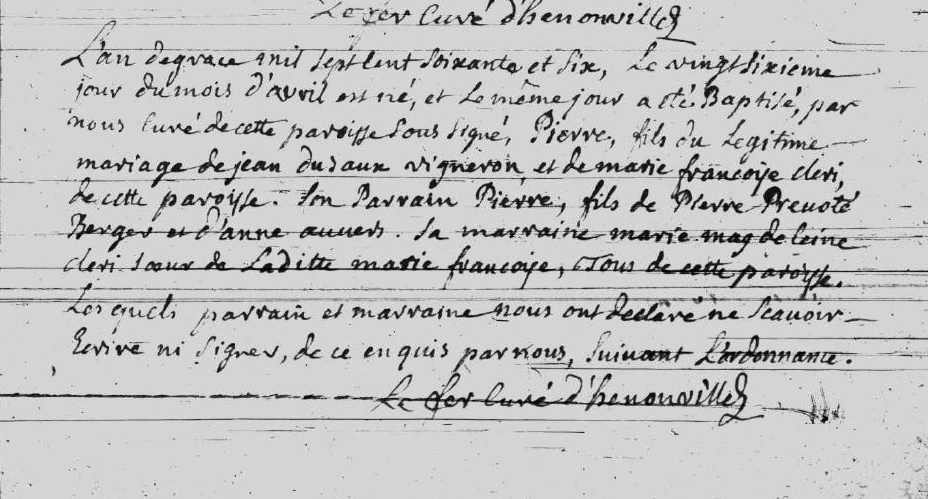 Le fer Curé d'henonville
L'an de grace mil sept Cent soixante et six, Le vingt sixieme
jour du mois d'avril est né, et Le même jour a été Baptisé, par
nous Curé de cette paroisse sous signé, Pierre, fils du Legitime
mariage de jean dusaux vigneron, et de marie francoise cleri,
de cette paroisse. Son Parrain Pierre, fils de Pierre Prevoté
Berger et d'anne auvers. Sa marraine marie magdeleine
cleri soeur de Laditte marie francoise, Tous de cette paroisse.
Lesquels parrain et marraine nous ont declaré ne Scavoir
Ecrire ni Signer, de ce enquis par nous, Suivant L'ordonnance.
Le fer Curé d'henonville